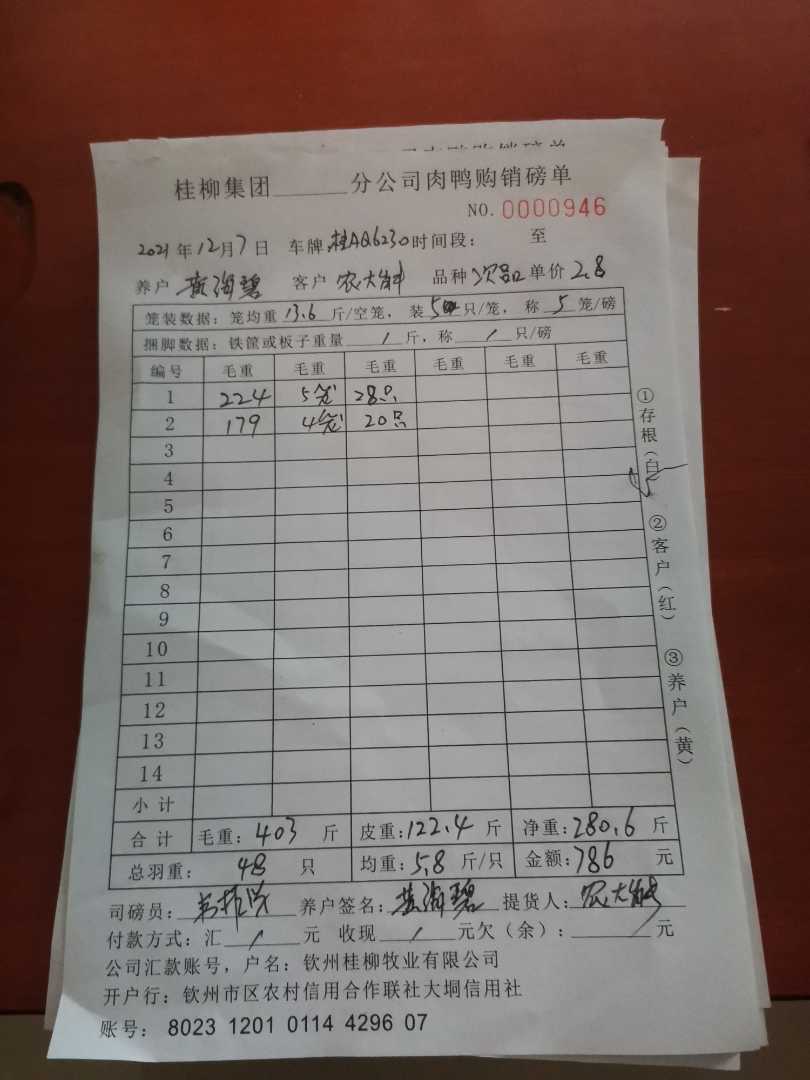 桂柳集团______分公司肉鸭购销磅单
NO. 0000946
2021年12月7日 车牌:桂AQ6230时间段: 至
养户 黄海碧 客户 农大 品种 次品 单价 2.8
笼装数据:笼均重 13.6 斤/空笼,装 5 只/笼,称 5 笼/磅
捆脚数据:铁筐或板子重量 / 斤,称 / 只/磅
编号 毛重 毛重 毛重 毛重 毛重 毛重
1 224 5笼 28只
2 179 4笼 20只
3
4
5
6
7
8
9
10
11
12
13
14
小计
合计 毛重:403 斤 皮重:122.4 斤 净重:280.6 斤
总羽重: 48 只 均重:5.8 斤/只 金额:786 元
司磅员: 养户签名:黄海碧 提货人:农大
付款方式:汇 / 元 收现 / 元欠(余): / 元
公司汇款账号,户名:钦州桂柳牧业有限公司
开户行:钦州市区农村信用合作联社大垌信用社
账号: 8023 1201 0114 4296 07
①存根(白)
②客户(红)
③养户(黄)